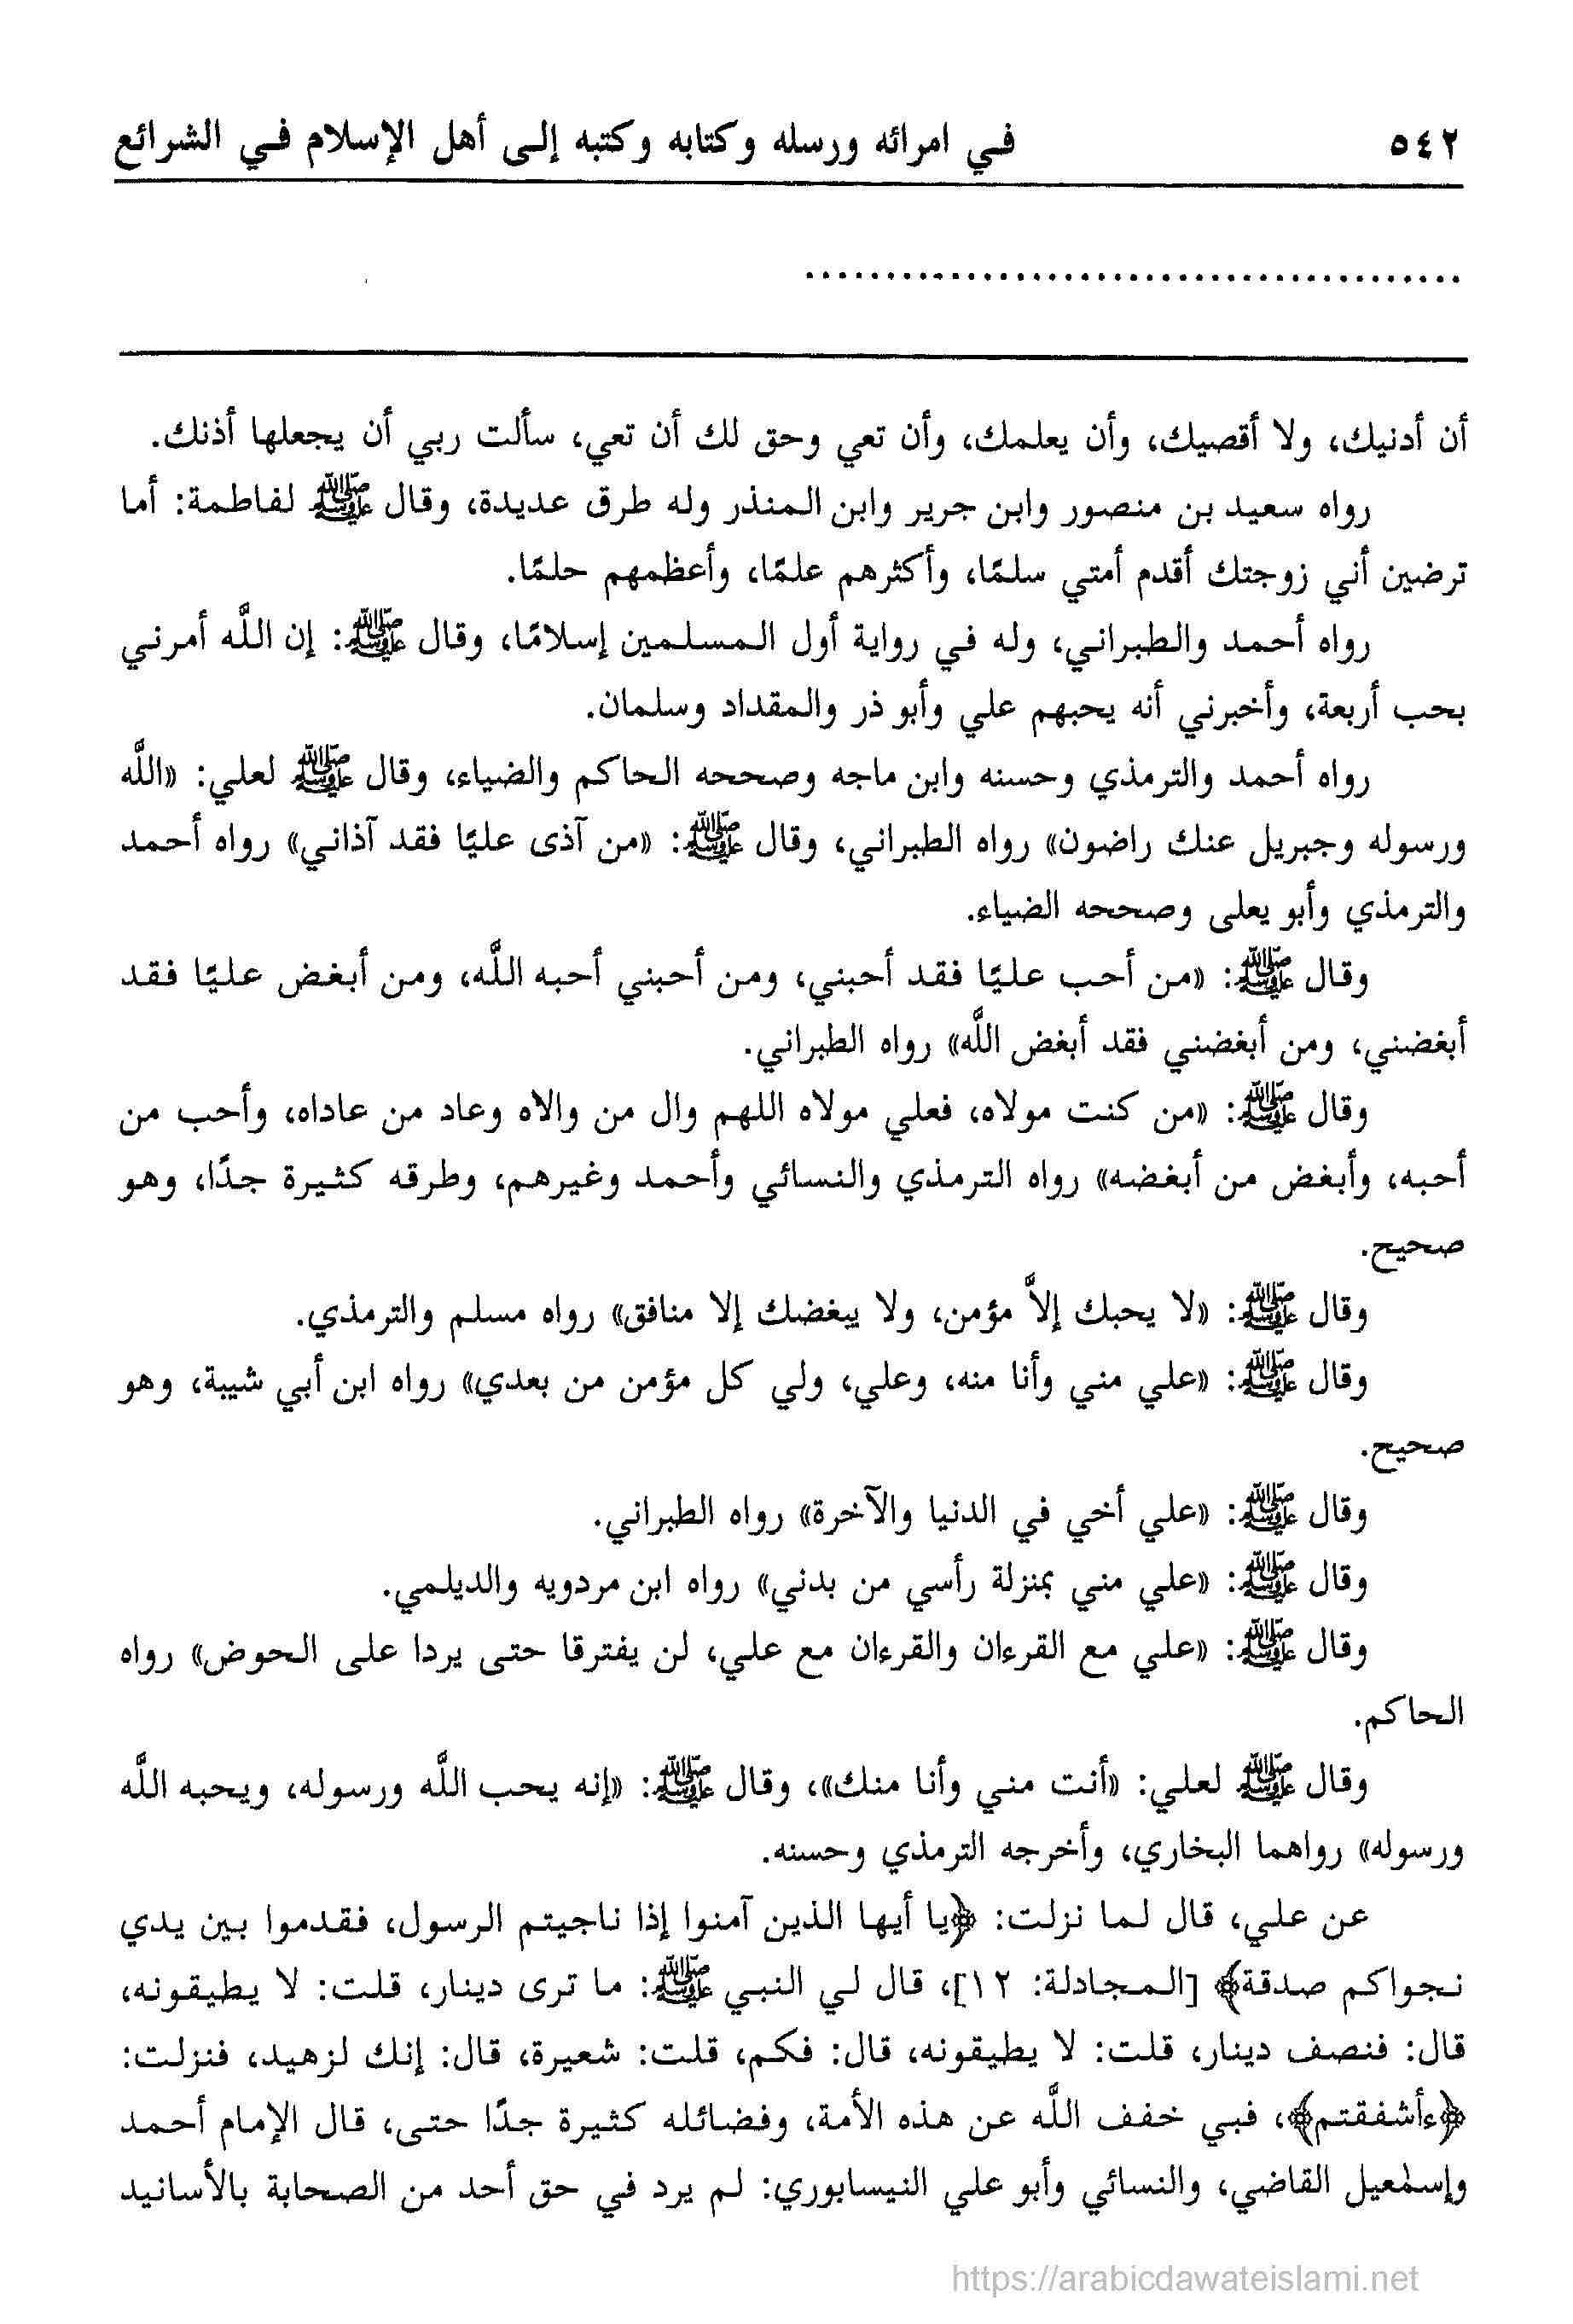 ٥٤٢ في امرائه ورسله وكتابه وكتبه إلى أهل الإسلام في الشرائع
........................................
أن أدنيك، ولا أقصيك، وأن يعلمك، وأن تعي وحق لك أن تعي، سألت ربي أن يجعلها أذنك.
رواه سعيد بن منصور وابن جرير وابن المنذر وله طرق عديدة، وقال ﷺ لفاطمة: أما
ترضين أني زوجتك أقدم أمتي سلمًا، وأكثرهم علمًا، وأعظمهم حلمًا.
رواه أحمد والطبراني، وله في رواية أول المسلمين إسلامًا، وقال ﷺ: إن اللَّه أمرني
بحب أربعة، وأخبرني أنه يحبهم علي وأبو ذر والمقداد وسلمان.
رواه أحمد والترمذي وحسنه وابن ماجه وصححه الحاكم والضياء، وقال ﷺ لعلي: «اللَّه
ورسوله وجبريل عنك راضون» رواه الطبراني، وقال ﷺ: «من آذى عليًا فقد آذاني» رواه أحمد
والترمذي وأبو يعلى وصححه الضياء.
وقال ﷺ: «من أحب عليًا فقد أحبني، ومن أحبني أحبه اللَّه، ومن أبغض عليًا فقد
أبغضني، ومن أبغضني فقد أبغض اللَّه» رواه الطبراني.
وقال ﷺ: «من كنت مولاه، فعلي مولاه اللهم وال من والاه وعاد من عاداه، وأحب من
أحبه، وأبغض من أبغضه» رواه الترمذي والنسائي وأحمد وغيرهم، وطرقه كثيرة جدًا، وهو
صحيح.
وقال ﷺ: «لا يحبك إلاَّ مؤمن، ولا يبغضك إلا منافق» رواه مسلم والترمذي.
وقال ﷺ: «علي مني وأنا منه، وعلي، ولي كل مؤمن من بعدي» رواه ابن أبي شيبة، وهو
صحيح.
وقال ﷺ: «علي أخي في الدنيا والآخرة» رواه الطبراني.
وقال ﷺ: «علي مني بمنزلة رأسي من بدني» رواه ابن مردويه والديلمي.
وقال ﷺ: «علي مع القرءان والقرءان مع علي، لن يفترقا حتى يردا على الحوض» رواه
الحاكم.
وقال ﷺ لعلي: «أنت مني وأنا منك»، وقال ﷺ: «إنه يحب اللَّه ورسوله، ويحبه اللَّه
ورسوله» رواهما البخاري، وأخرجه الترمذي وحسنه.
عن علي، قال لما نزلت: ﴿يا أيها الذين آمنوا إذا ناجيتم الرسول، فقدموا بين يدي
نجواكم صدقة﴾ [المجادلة: ١٢]، قال لي النبي ﷺ: ما ترى دينار، قلت: لا يطيقونه،
قال: فنصف دينار، قلت: لا يطيقونه، قال: فكم، قلت: شعيرة، قال: إنك لزهيد، فنزلت:
﴿ءأشفقتم﴾، فبي خفف اللَّه عن هذه الأمة، وفضائله كثيرة جدًا حتى، قال الإمام أحمد
وإسمٰعيل القاضي، والنسائي وأبو علي النيسابوري: لم يرد في حق أحد من الصحابة بالأسانيد
https://arabicdawateislami.net